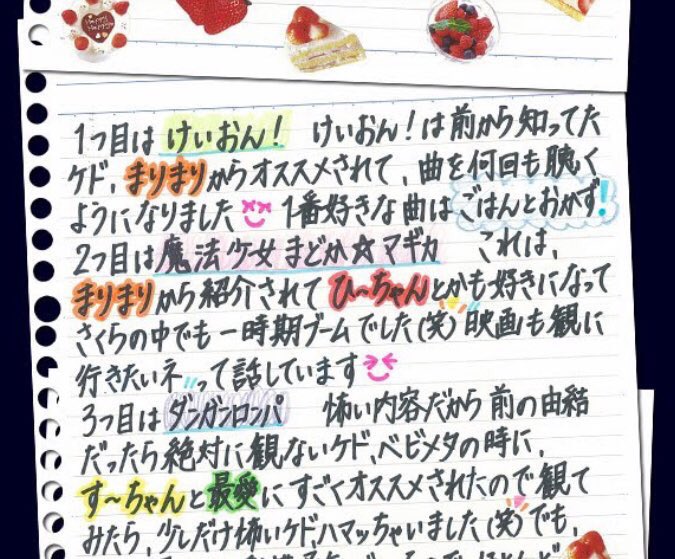 1つ目は けいおん! けいおん!は前から知ってた
ケド、まりまりからオススメされて、曲を何回も聴く
ようになりました 1番好きな曲は ごはんとおかず!
2つ目は 魔法少女まどか☆マギカ これは、
まりまりから紹介されて ひ〜ちゃんとかも好きになって
さくらの中でも一時期ブームでした(笑) 映画も観に
行きたいネって話しています
3つ目は ダンガンロンパ 怖い内容だから前の由結
だったら絶対に観ないケド、ベビメタの時に、
す〜ちゃんと最愛にすごくオススメされたので観て
みたら、少しだけ怖いケド、ハマッちゃいました(笑)でも、